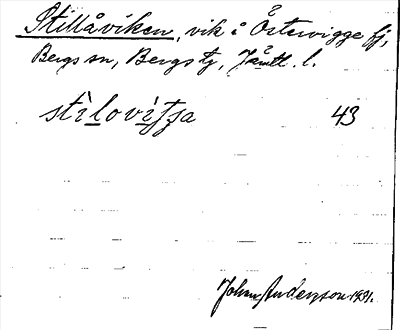 Stillåviken, vik i Östervigge fj,
Bergs sn, Bergs tg, Jämtl. l.
stìlovìʃʒa 43
Johan Anderson 1931.